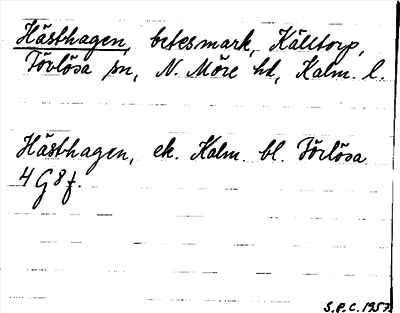 Hästhagen, betesmark, Källtorp,
Förlösa sn, N. Möre hd, Kalm. l.
Hästhagen, ek. Kalm. bl. Förlösa
4 G 8 f.
S.P.C. 1957.